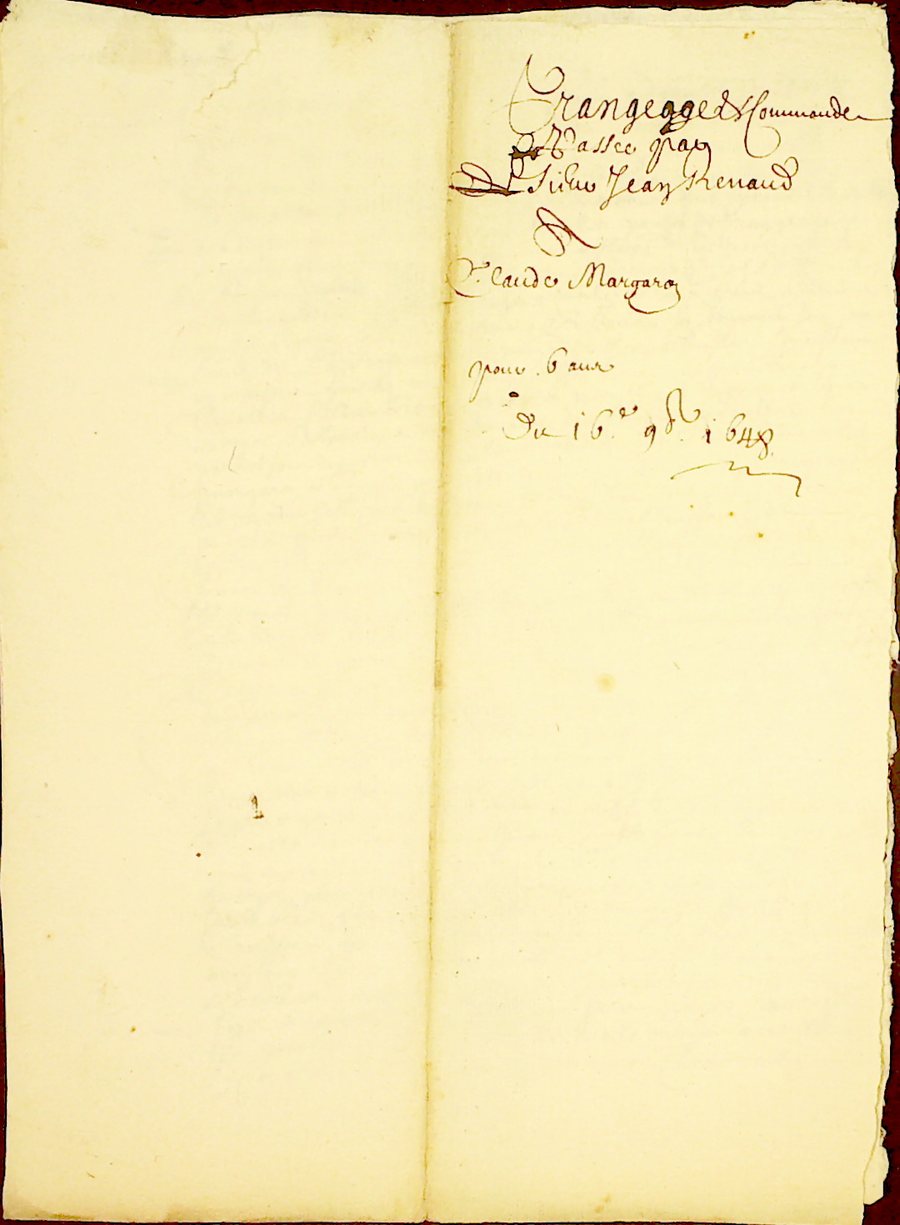 Grangeage & Commande
Passée par
Sieur Jean Renaud
A
Claude Margaro
pour 6 ans
Du 16.e 9bre 1648